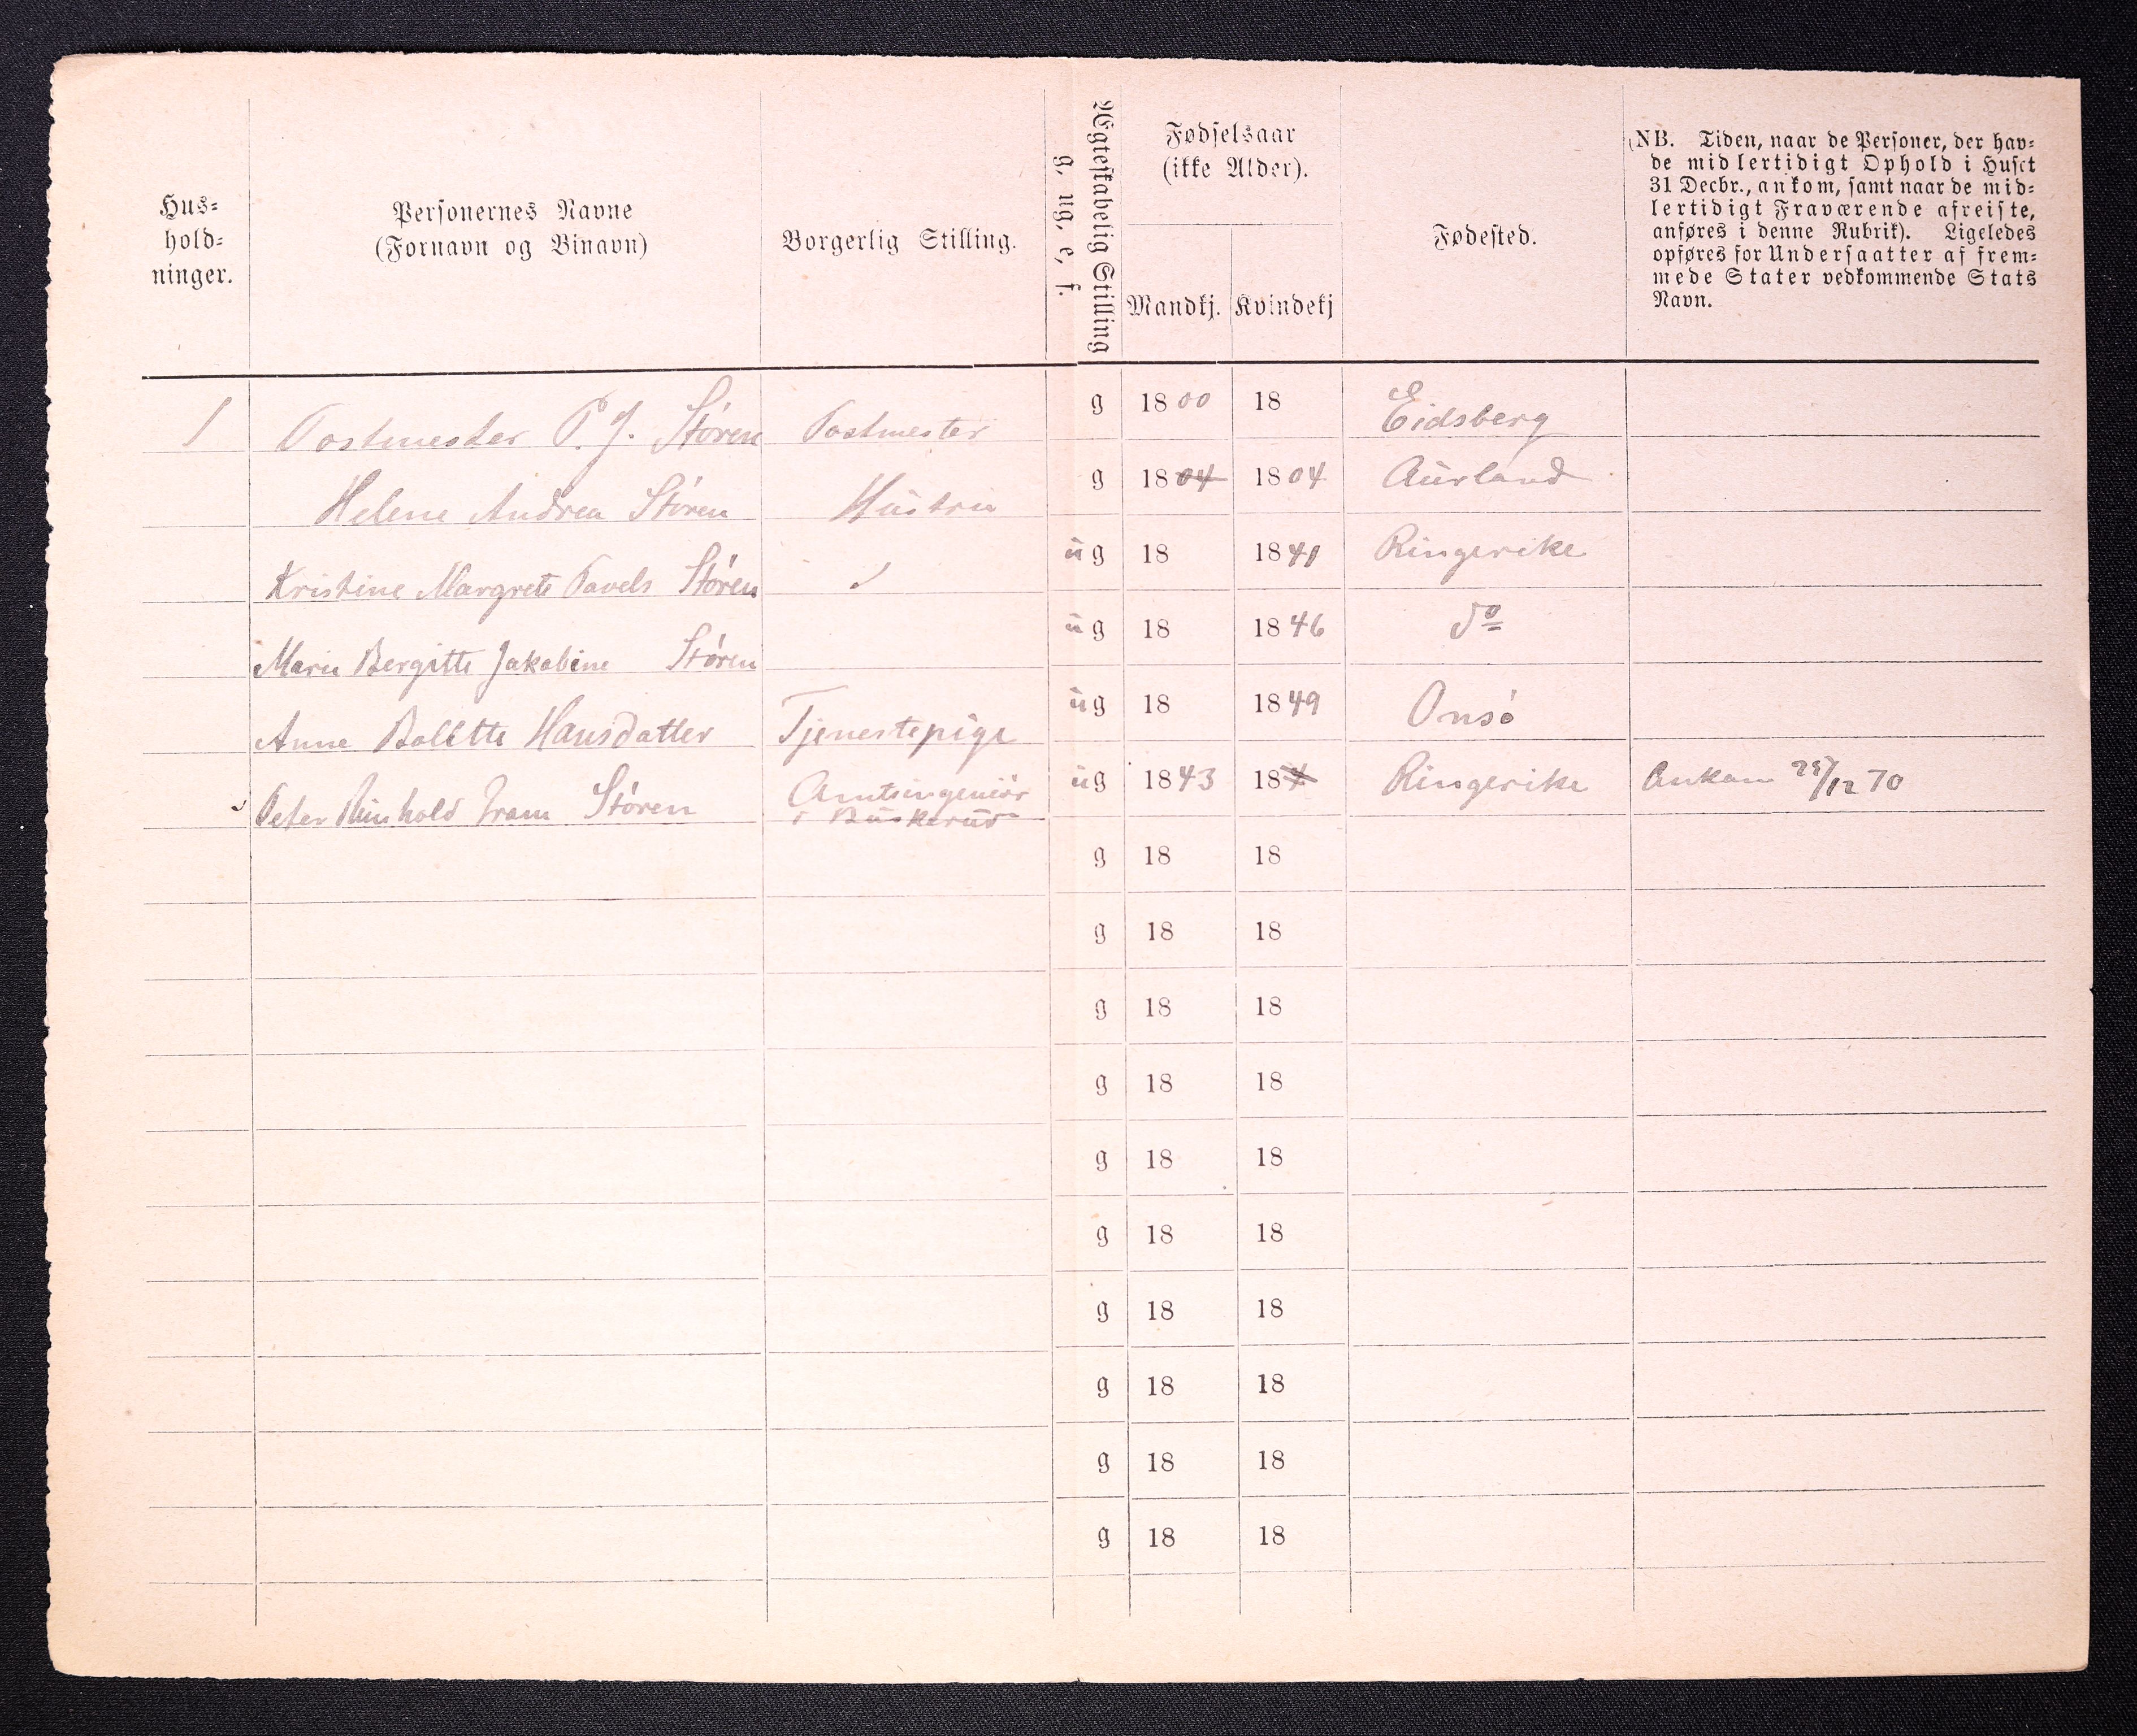 Hus-
hold-
ninger.
Personernes Navne
(Fornavn og Binavn)
Borgerlig Stilling.
Ægteskabelig Stilling
g, ug, e, f.
Fødselsaar
(ikke Alder).
Mandkj. Kvindekj
Fødested.
(NB. Tiden, naar de Personer, der hav-
de midlertidigt Ophold i Huset
31 Decbr., ankom, samt naar de mid-
lertidigt Fraværende afreiste,
anføres i denne Rubrik). Ligeledes
opføres for Undersaatter af frem-
mede Stater vedkommende Stats
Navn.
1 Postmester P. J. Stören Postmester g 1800 18 Eidsberg
Helene Andrea Stören Hustru g 1804 1804 Aurland
Kristine Margrete Pavels Stören ug 18 1841 Ringerike
Marie Bergitte Jakobine Stören ug 18 1846 do
Anne Bolette Hansdatter Tjenestepige ug 18 1849 Onsö
Peter Reinhold Stören Amtsingeniör
i Buskerud ug 1843 184 Ringerike Ankom /12 70
g 18 18
g 18 18
g 18 18
g 18 18
g 18 18
g 18 18
g 18 18
g 18 18
g 18 18
g 18 18